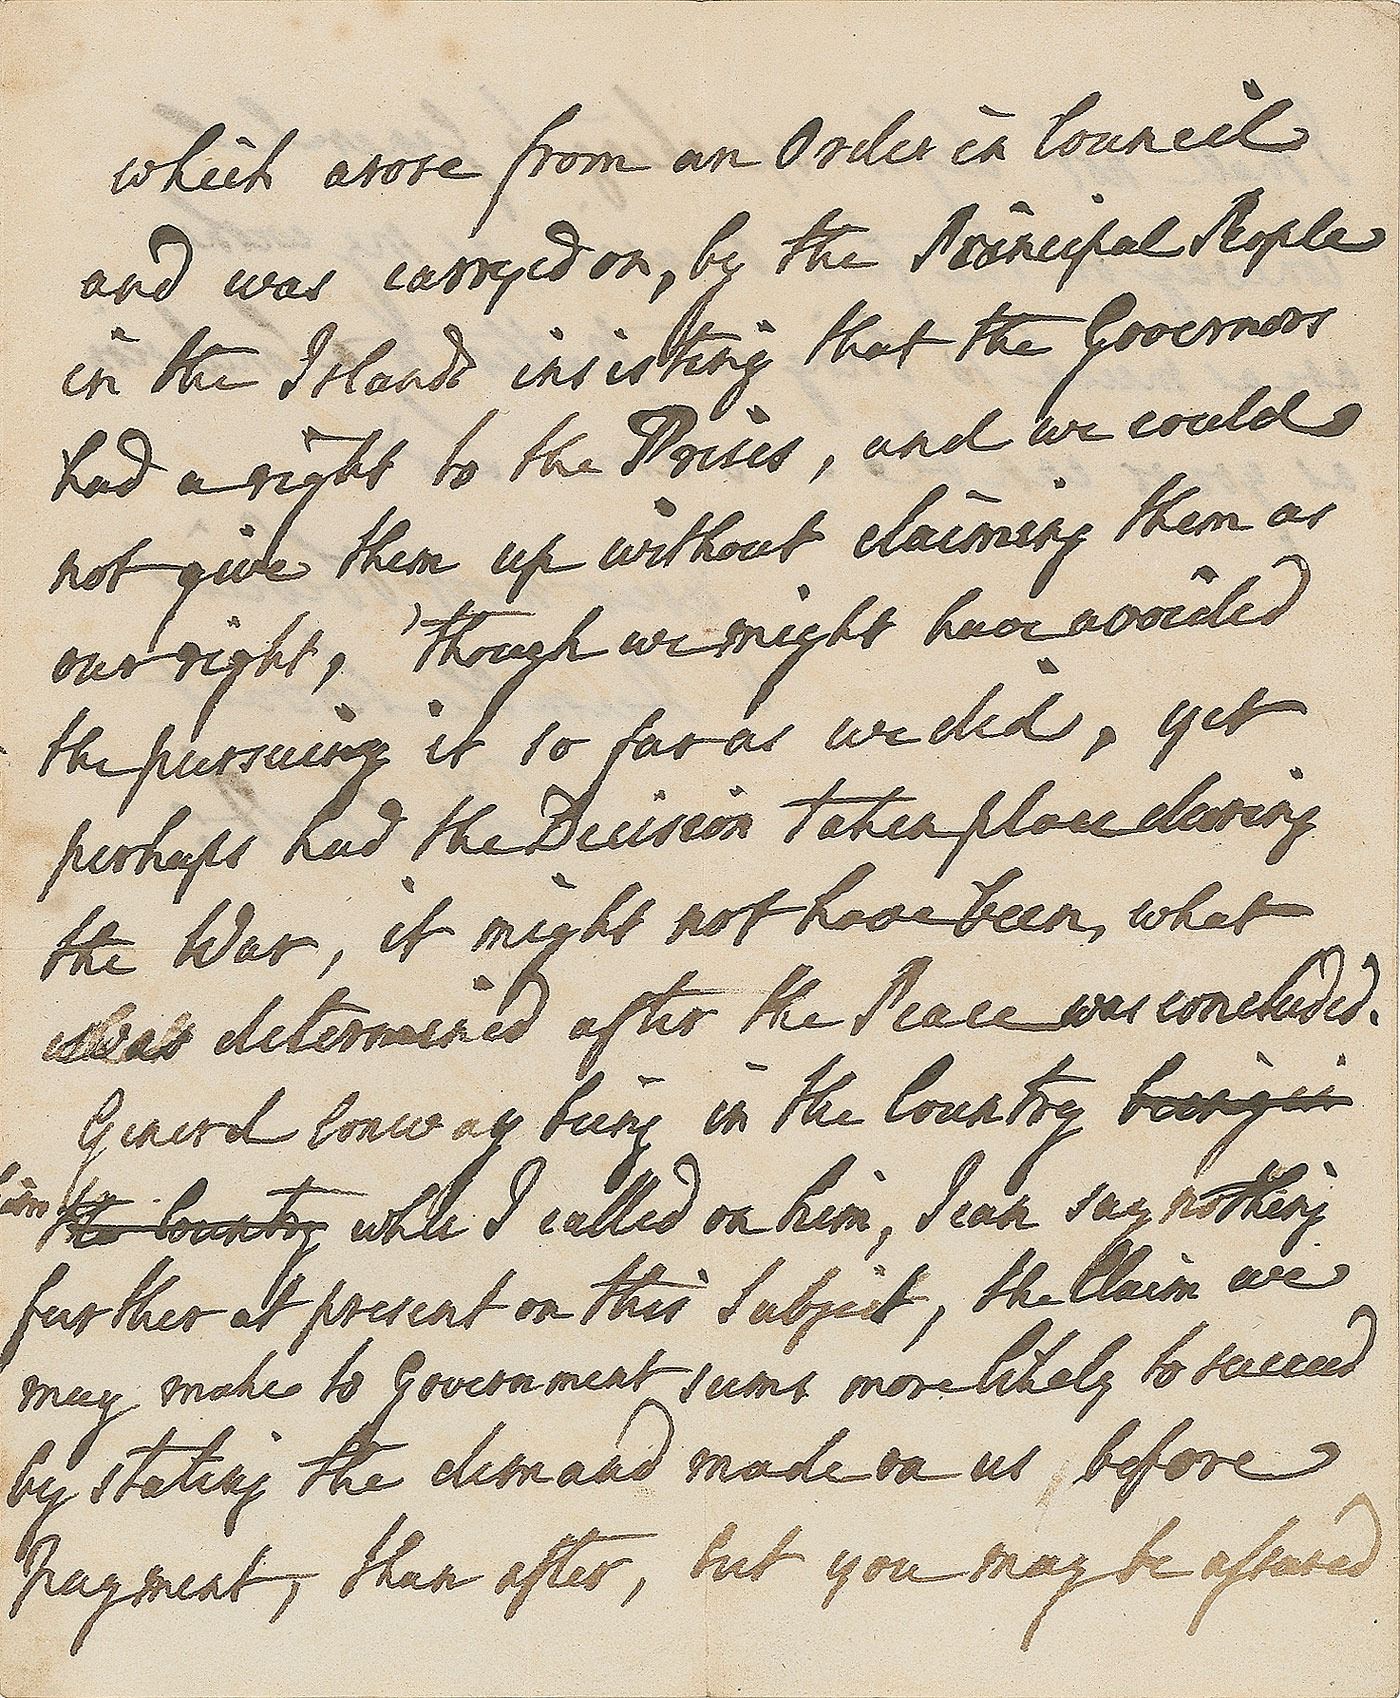 which arose from an Order in Council
and was carryed on, by the Principal People
in the Islands insisting that the Governors
had a right to the Prises, and we could
not give them up without claiming them as
our right, 'though we might have avoided
the pursuing it so far as we did, yet
perhaps had the Decision taken place during
the War, it might not have been, what
was determined after the Peace was concluded.
General Conway being in the Country being in
the Country whe I called on him, I can say nothing
further at present on this Subject, the Claim we
may make to Government seems more likely to succeed
by stating the demand made on us, before
Payment, than after, but you may be assured